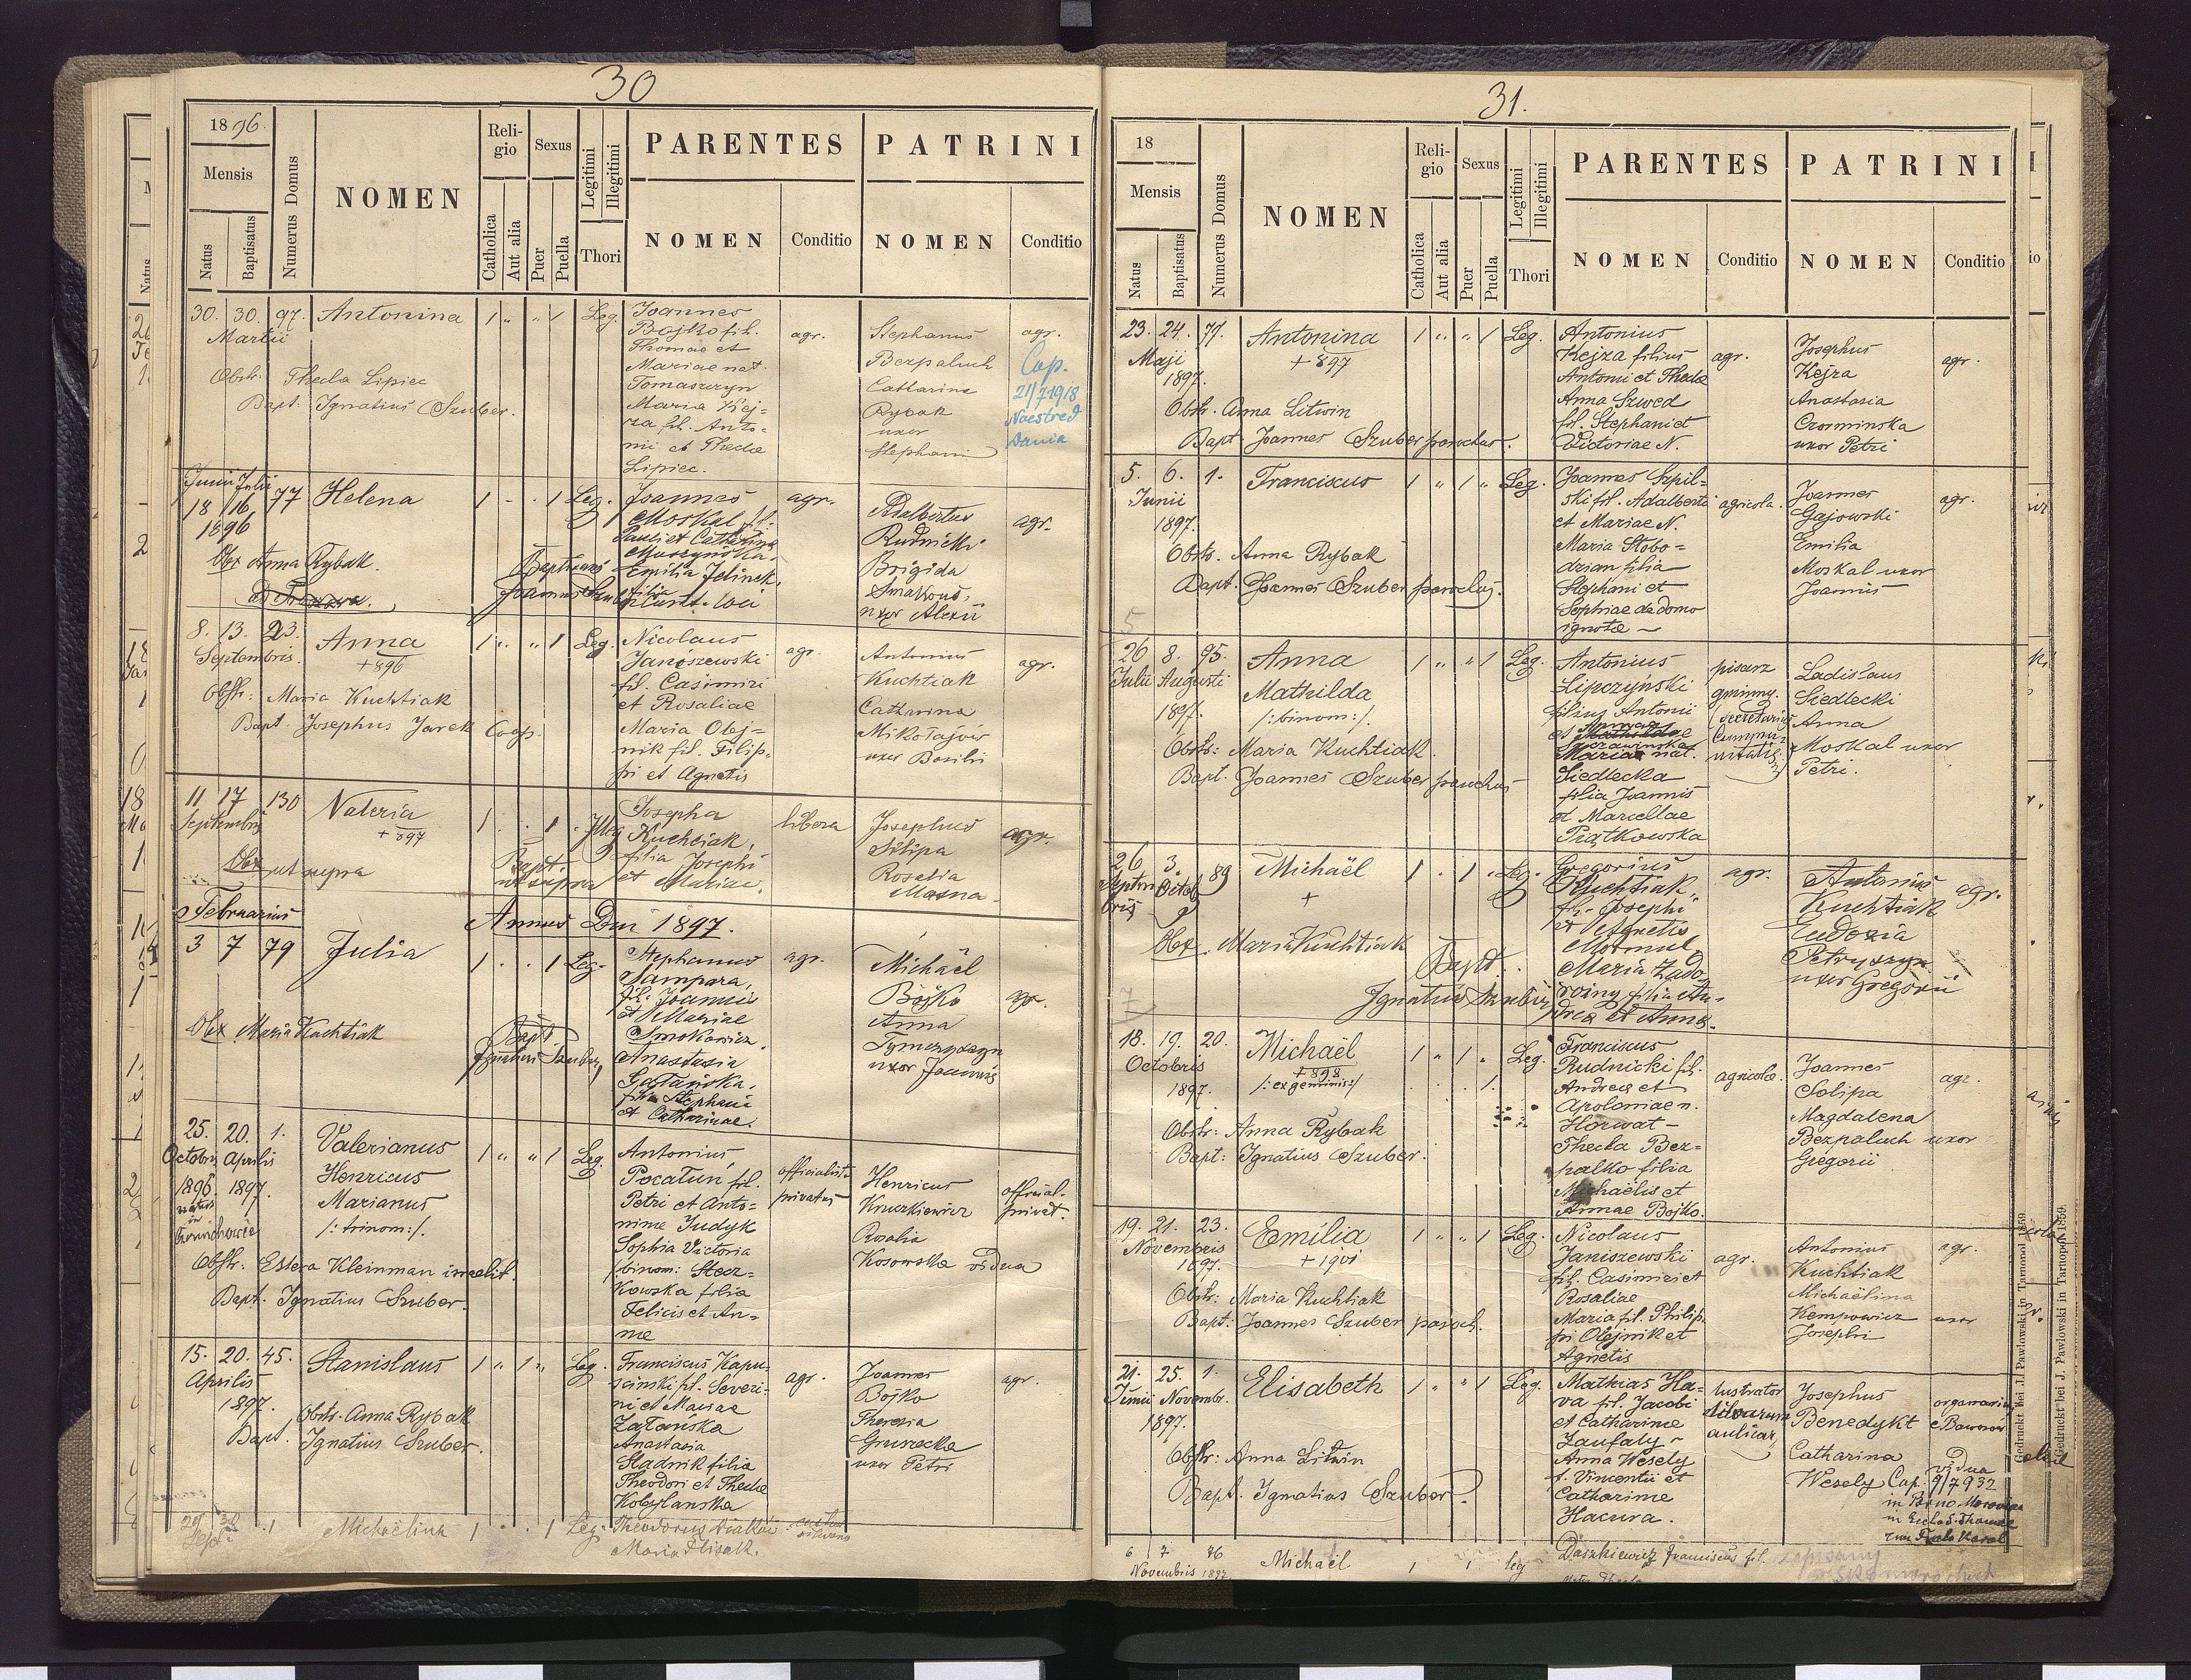 30
1896.
Mensis
Natus
Baptisatus
Numerus Domus
NOMEN
Religio
Catholica
Aut alia
Sexus
Puer
Puella
Legitimi
Illegitimi
Thori
PARENTES
NOMEN
Conditio
PATRINI
NOMEN
Conditio
30. 30. 97. Antonina 1 „ „ 1 Leg.
Martii
Obstr. Thecla Lipiec
Bapt. Ignatius Szuber.
Joannes
Bojko fil.
Thomae et
Mariae nat.
Tomaszczyn
Maria Kej=
za fil. Anto=
nii et Theclae
Lipiec.
agr.
Stephanus
Bezpaluch
Catharina
Rybak
uxor
Stephani
agr.
Cop.
21/7 1918
Naestved
Dania
Junii Julii
18 16 77 Helena 1 - . 1 Leg.
1896
Obx Anna Rybak.
Baptisans
Joannes Szuber
Joannes
Moskal fil.
Pauli et Catharina
Muszyńska.
Emilia Jelinek,
filia
agr.
Adalbertus
Rudnicki
Brigida
uxor Alexii
agr.
8. 13. 23. Anna 1 „ „ 1 Leg.
Septembris. + 896
Obstr: Maria Kuchtiak
Bapt. Josephus Jarek Coop.
Nicolaus
Janiszewski
fil. Casimiri
et Rosaliae
Maria Olej=
nik fil. Filip=
pi et Agnetis
agr.
Antonius
Kuchtiak
Catharina
Mikołajów
uxor Basilii
agr.
11 17 130 Valeria 1 . . 1 . Illeg
Septembris + 897
Obx ut supra
Bapt.
ut supra
Josepha
Kuchtiak,
filia Josephi
et Mariae.
libera
Josephus
Silipa
Rosalia
Mazna
agr.
Februarius
Annus Dni 1897.
3 7 79 Julia 1 . . 1 Leg.
Obx Maria Kuchtiak
Bapt.
Ignatius Szuber
Stephanus
Sampara,
fil. Joannis
et Mariae
Smokowicz.
Anastasia
filia Stephani
et Catharinae.
agr.
Michaël
Bojko
Anna
Tymczyszyn
uxor Joannis
agr.
25. 20. 1. Valerianus 1 „ „ 1 Leg.
Octobris Aprilis Henricus
1896. 1897. Marianus
natus
in
/: trinom: /.
Obstr. Estera Kleinman israelit.
Bapt. Ignatius Szuber.
Antonius
Pocałuń fil.
Petri et Anto=
ninae Judyk
Sophia Victoria
/binom: Stecz=
kowska filia
Felicis et An=
nae
officialista
privatus
Henricus
Kruszkiewicz
Rosalia
Kosowska vidua
official.
privat.
15. 20. 45. Stanislaus 1 „ 1 „ Leg.
Aprilis
1897.
Obstr. Anna Rybak
Bapt. Ignatius Szuber.
Franciscus Kapu=
ściński fil. Severi=
ni et Mariae
Załańska
Anastasia
Sladnik filia
Theodori et Theclae
Kobylanska
agr.
Joannes
Bojko
Theresia
Gruszecka
uxor Petri
agr.
29 30 1 Michaëlina 1 . . 1 Leg. Theodorus
Sept.
Maria
31.
18
Mensis
Natus
Baptisatus
Numerus Domus
NOMEN
Religio
Catholica
Aut alia
Sexus
Puer
Puella
Legitimi
Illegitimi
Thori
PARENTES
NOMEN
Conditio
PATRINI
NOMEN
Conditio
23. 24. 77. Antonina 1 „ „ 1 Leg.
Maji + 897
1897.
Obstr. Anna Litwin
Bapt. Joannes Szuber parochus.
Antonius
Kejza filius
Antonii et Theclae
Anna Szwed
fil. Stephani et
Victoriae N.
agr.
Josephus
Kejza
Anastasia
Czorminska
uxor Petri
agr.
5. 6. 1. Franciscus 1 „ 1 „ Leg.
Junii
1897.
Obstr. Anna Rybak
Bapt. Joannes Szuber parochus.
Joannes Szpil=
ski fil. Adalberti
et Mariae N.
Maria Słobo=
dzian filia
Stephani et
Sophiae de domo
ignotae –
agricola.
Joannes
Gajowski
Emilia
Moskal uxor
Joannis
agr.
5
26 8. 95. Anna 1 „ „ 1 Leg.
Julii Augusti Mathilda
1897. /: binom: /.
Obstr: Maria Kuchtiak.
Bapt. Joannes Szuber parochus
Antonius
Lipczyński
filius Antonii
et
Mariae nat.
Siedlecka
filia Joannis
et Marcellae
Piątkowska
pisarz
gminny.
(secretarius
communi=
tatis.)
Ladislaus
Siedlecki
Anna
Moskal uxor
Petri.
26 3. 89 Michaël 1 . 1 . Leg.
Septem Octob +
bris
Obx. Maria Kuchtiak
Bapt.
Ignatius Szuber
Gregorius
Kuchtiak,
fil. Josephi
et Agnetis
Mormul
Maria Zado
rożny filia An=
dreae et Annae.
agr.
Antonius
Kuchtiak
Eudoxia
Petryszyn
uxor Gregorii
agr.
7
18. 19. 20. Michaël 1 „ 1 „ Leg.
Octobris + 898
1897. /: ex geminis: /
Obstr: Anna Rybak
Bapt: Ignatius Szuber.
Franciscus
Rudnicki fil.
Andreae et
Apoloniae n.
Horwat –
Thecla Bez=
palko filia
Michaëlis et
Annae Bojko.
agricola.
Joannes
Solipa
Magdalena
Bezpaluch uxor
Gregorii
agr.
19. 21. 23. Emilia 1 „ „ 1 Leg.
Novembris + 1901
1897.
Obstr: Maria Kuchtiak
Bapt: Joannes Szuber paroch.
Nicolaus
Janiszewski
fil. Casimiri et
Rosaliae
Maria fil. Philip=
pi Olejnik et
Agnetis
agr.
Antonius
Kuchtiak
Michaëlina
Kempowicz uxor
Josephi
agr.
21. 25. 1. Elisabeth 1 „ „ 1 Leg.
Junii Novembr.
1897.
Obstr: Anna Litwin
Bapt. Ignatius Szuber.
Mathias Ha=
va fil. Jacobi
et Catharinae
Zaufaly –
Anna Wesely
f. Vincentii et
Catharinae
Hacura.
lustrator
silvarum
aulicar.
Josephus
Benedykt
Catharina
Wesely
vidua
Cop. 9/7 932
6 7 76 Michaël 1 1 leg
Novembris 1897
Daszkiewicz Franciscus fil.
zapisany
Gedruckt bei J. Pawłowski in Tarnopol 1859.